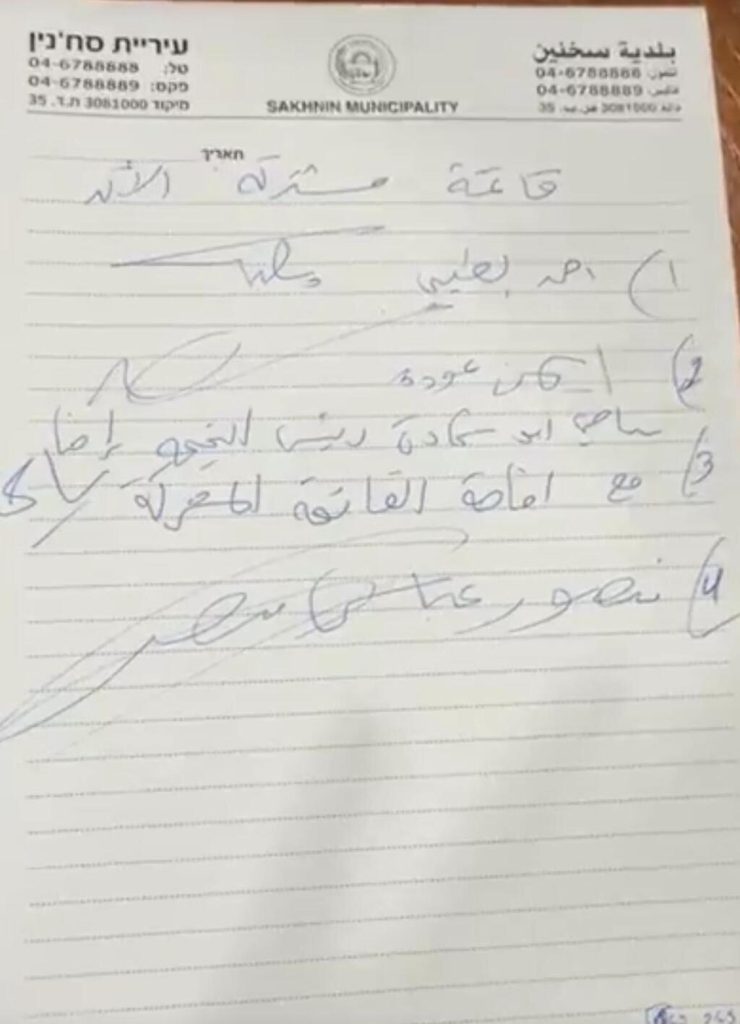 עיריית סח'נין
טל: 04-6788888
פקס: 04-6788889
מיקוד 3081000 ת.ד. 35
SAKHNIN MUNICIPALITY
بلدية سخنين
تلفون: 04-6788888
فاكس: 04-6788889
35
תאריך
قائمة مشتركة الآن
1) احمد طيبي
2) ايمن عودة
3) سامي ابو شحادة رئيس التجمع
مع اقامة القائمة المشتركة
4) منصور عباس